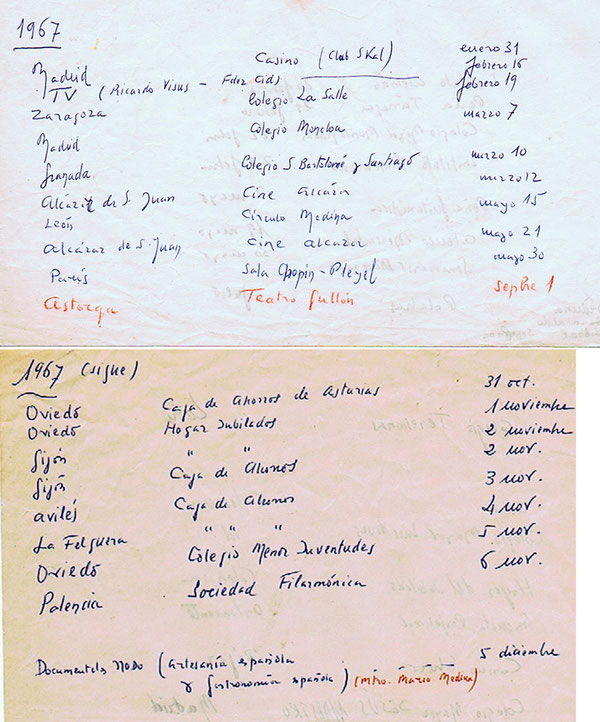 1967
Madrid Casino (Club SKal) enero 31
TV (Ricardo Visus - Fdez Cid) febrero 16
Zaragoza Colegio La Salle febrero 19
Madrid Colegio Moncloa marzo 7
Granada Colegio S. Bartolomé y Santiago marzo 10
Alcázar de S. Juan Cine Alcázar marzo 12
León Círculo Medina mayo 15
Alcázar de S. Juan Cine Alcázar mayo 21
París Sala Chopin-Pleyel mayo 30
Astorga Teatro Gullón Sepbre 1
1967 (sigue)
Oviedo Caja de Ahorros de Asturias 31 oct.
Oviedo Hogar Jubilados 1 noviembre
Gijón " " 2 noviembre
Gijón Caja de Ahorros 2 nov.
Avilés Caja de Ahorros 3 nov.
La Felguera " " " 4 nov.
Oviedo Colegio Menor Juventudes 5 nov.
Palencia Sociedad Filarmónica 6 nov.
Documentales NODO (Artesanía española 5 diciembre
y Gastronomía española) (Mtro. Mario Medina)